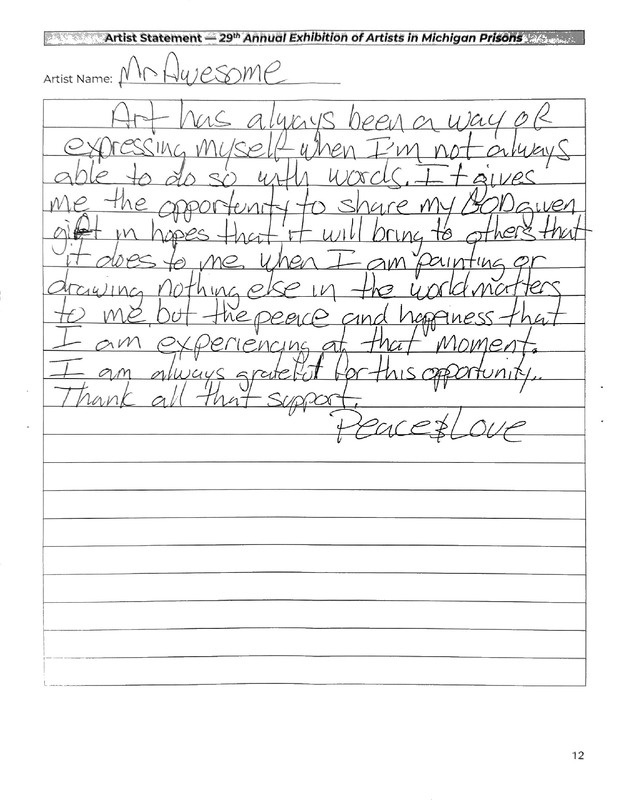 Artist Statement — 29th Annual Exhibition of Artists in Michigan Prisons
Artist Name: Mr Awesome
Art has always been a way of
expressing myself when I'm not always
able to do so with words. It gives
me the opportunity to share my GOD given
gift in hopes that it will bring to others that
it does to me. when I am painting or
drawing nothing else in the world matters
to me but the peace and happiness that
I am experiencing at that moment.
I am always grateful for this opportunity..
Thank all that support.
Peace & Love
12